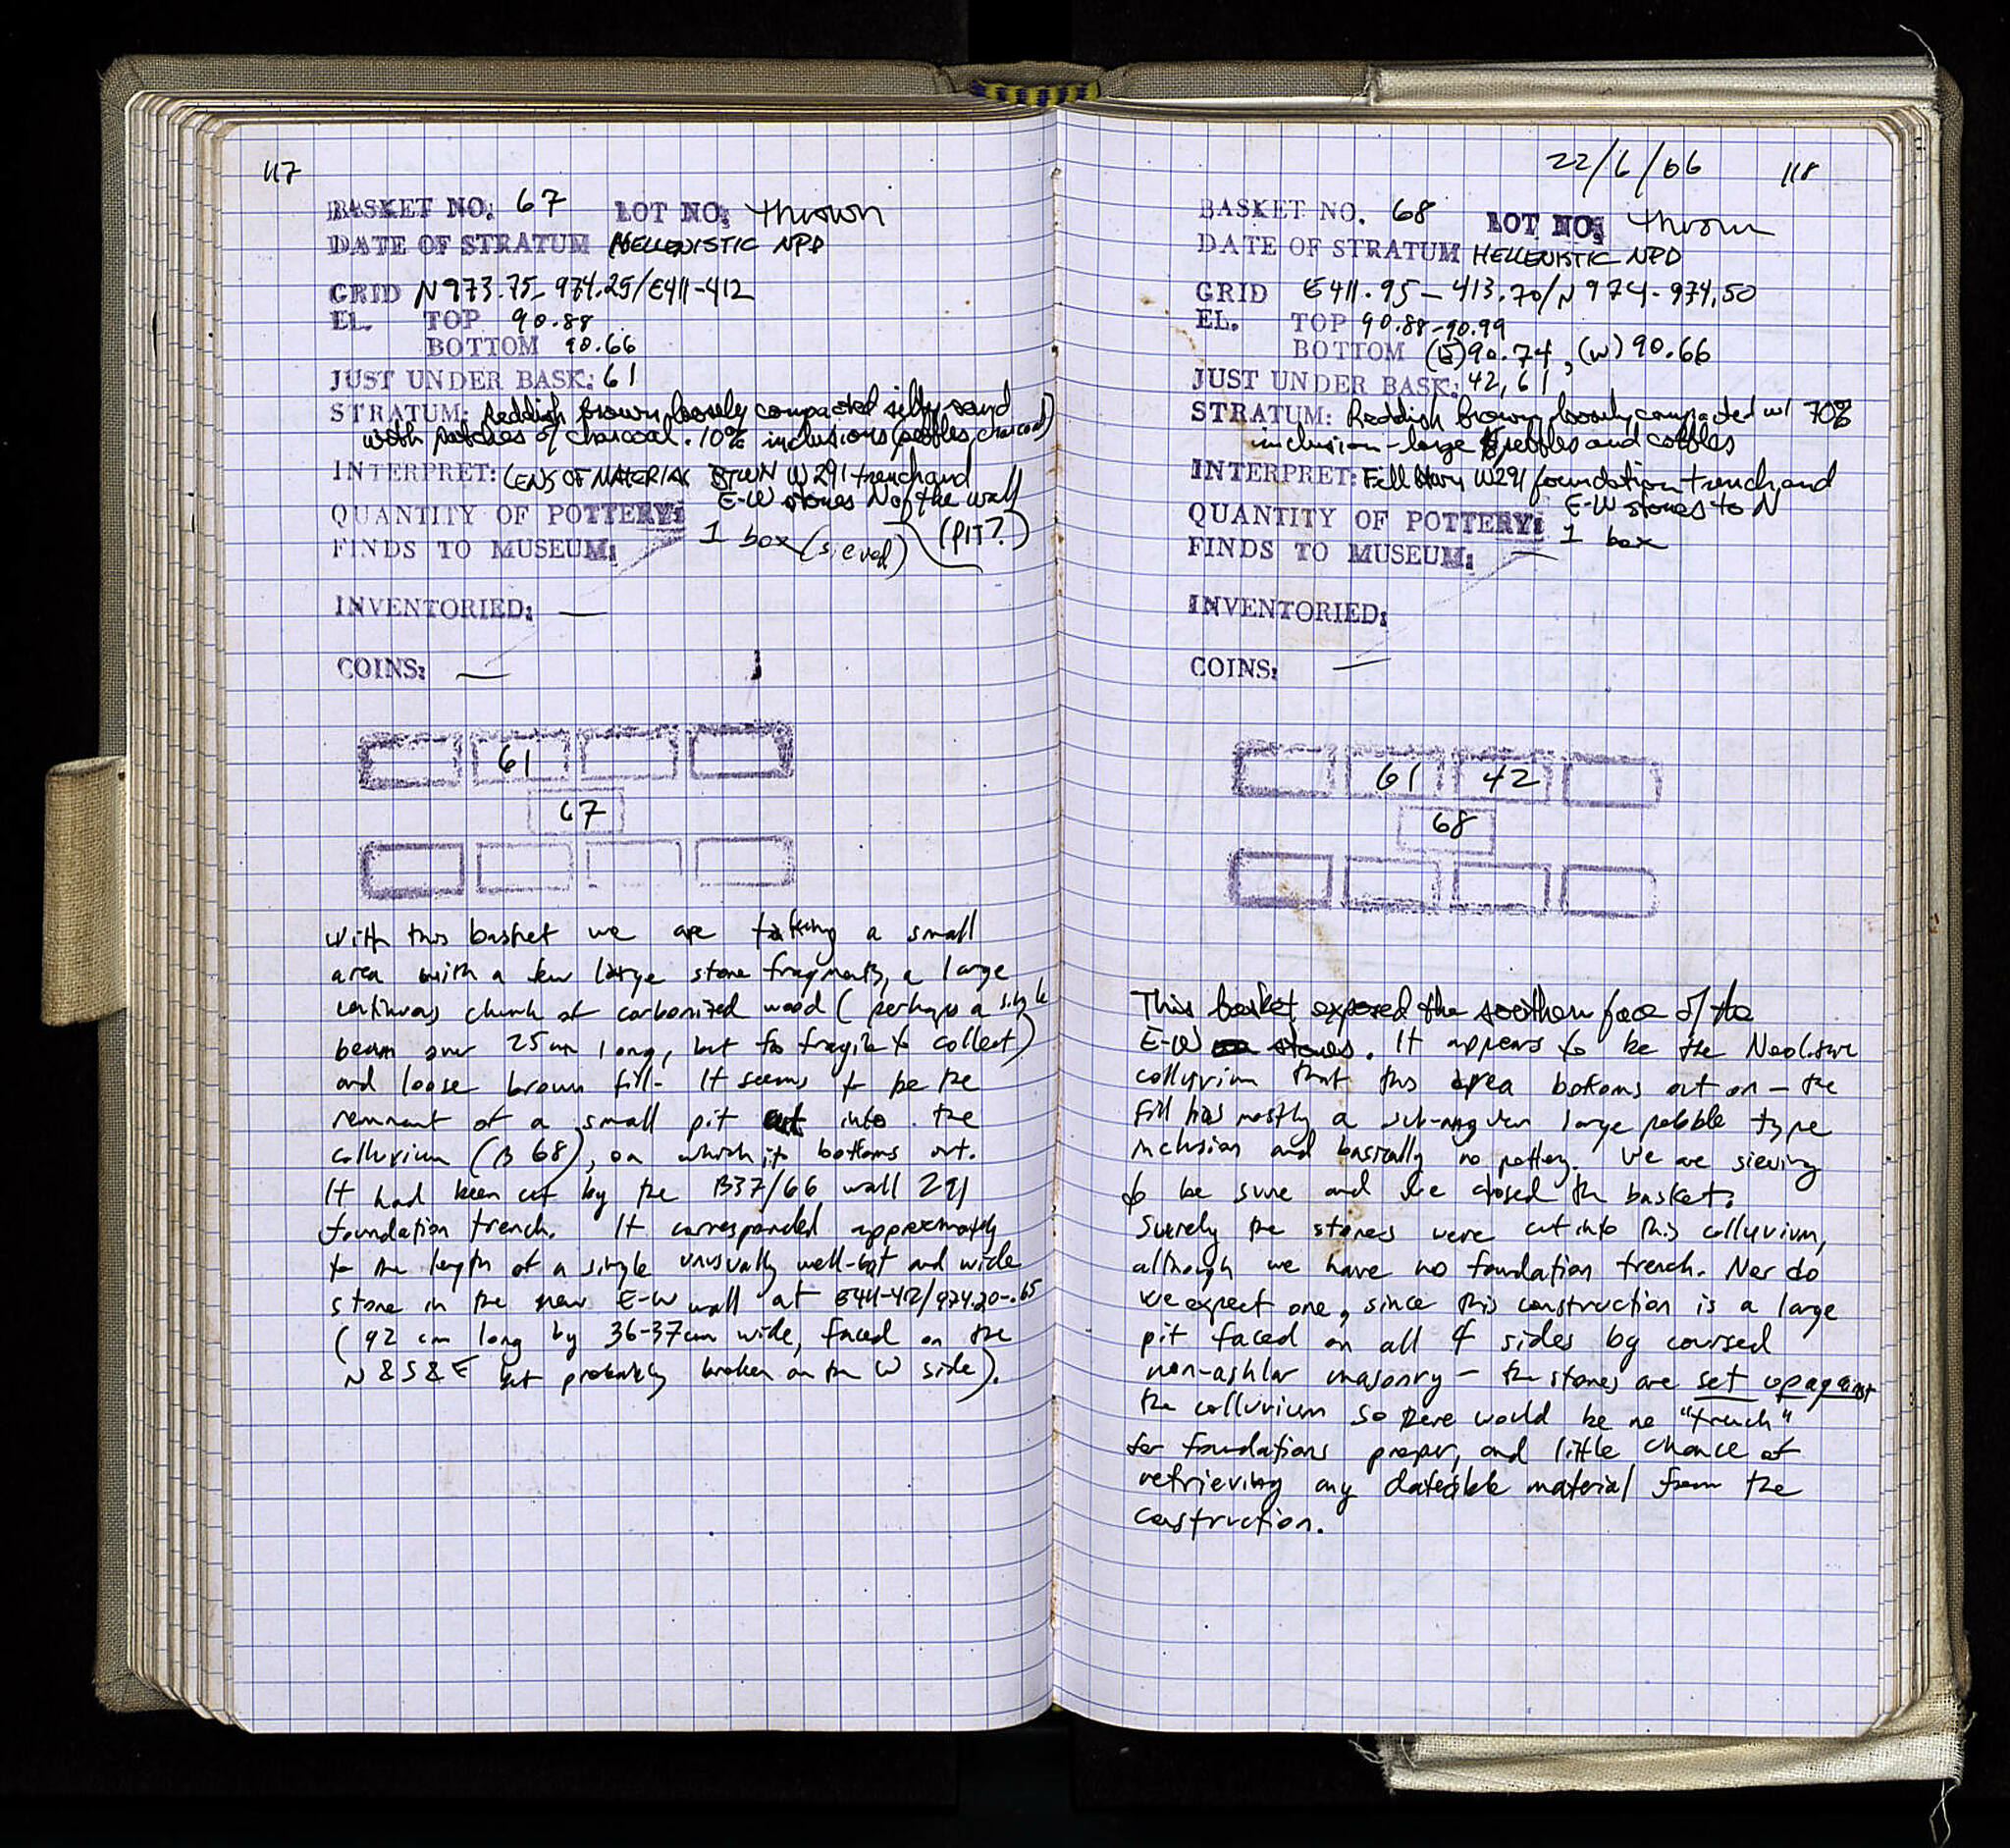 117
BASKET NO. 67 LOT NO: thrown
DATE OF STRATUM HELLENISTIC NPD
GRID N973.75-974.25/E411-412
EL. TOP 90.88
BOTTOM 90.66
JUST UNDER BASK: 61
STRATUM: Reddish brown, loosely compacted silty sand
with patches of charcoal. 10% inclusions (pebbles, charcoal)
INTERPRET: LENS OF MATERIAL BTWN W291 trench and
E-W stones N of the wall
(PIT?)
QUANTITY OF POTTERY: 1 box (sieved)
FINDS TO MUSEUM:
INVENTORIED: —
COINS: —
61
67
With this basket we are taking a small
area with a few large stone fragments, a large
continuous chunk of carbonized wood (perhaps a single
beam over 25cm long, but too fragile to collect)
and loose brown fill. It seems to be the
remnant of a small pit cut into the
colluvium (B 68), on which it bottoms out.
It had been cut by the B37/66 wall 291
foundation trench. It corresponded approximately
to the length of a single unusually well-cut and wide
stone in the new E-W wall at E411-412/974.20-.65
(92 cm long by 36-37cm wide, faced on the
N & S & E but probably broken on the W side).
22/6/06 118
BASKET NO. 68 LOT NO: thrown
DATE OF STRATUM HELLENISTIC NPD
GRID E411.95-413.70/N974-974.50
EL. TOP 90.88-90.99
BOTTOM (E)90.74, (W)90.66
JUST UNDER BASK: 42, 61
STRATUM: Reddish brown, loosely compacted w/ 70%
inclusion - large pebbles and cobbles
INTERPRET: Fill btwn W291 foundation trench and
E-W stones to N
QUANTITY OF POTTERY: 1 box
FINDS TO MUSEUM: —
INVENTORIED:
COINS: —
61 42
68
This basket exposed the southern face of the
E-W stones. It appears to be the Neolithic
colluvium that this area bottoms out on - the
fill has mostly a sub-angular large pebble type
inclusion and basically no pottery. We are sieving
to be sure and closed the basket.
Surely the stones were cut into this colluvium,
although we have no foundation trench. Nor do
we expect one, since this construction is a large
pit faced on all 4 sides by coursed
non-ashlar masonry - the stones are set up against
the colluvium so there would be no "trench"
for foundations proper, and little chance of
retrieving any dateable material from the
construction.